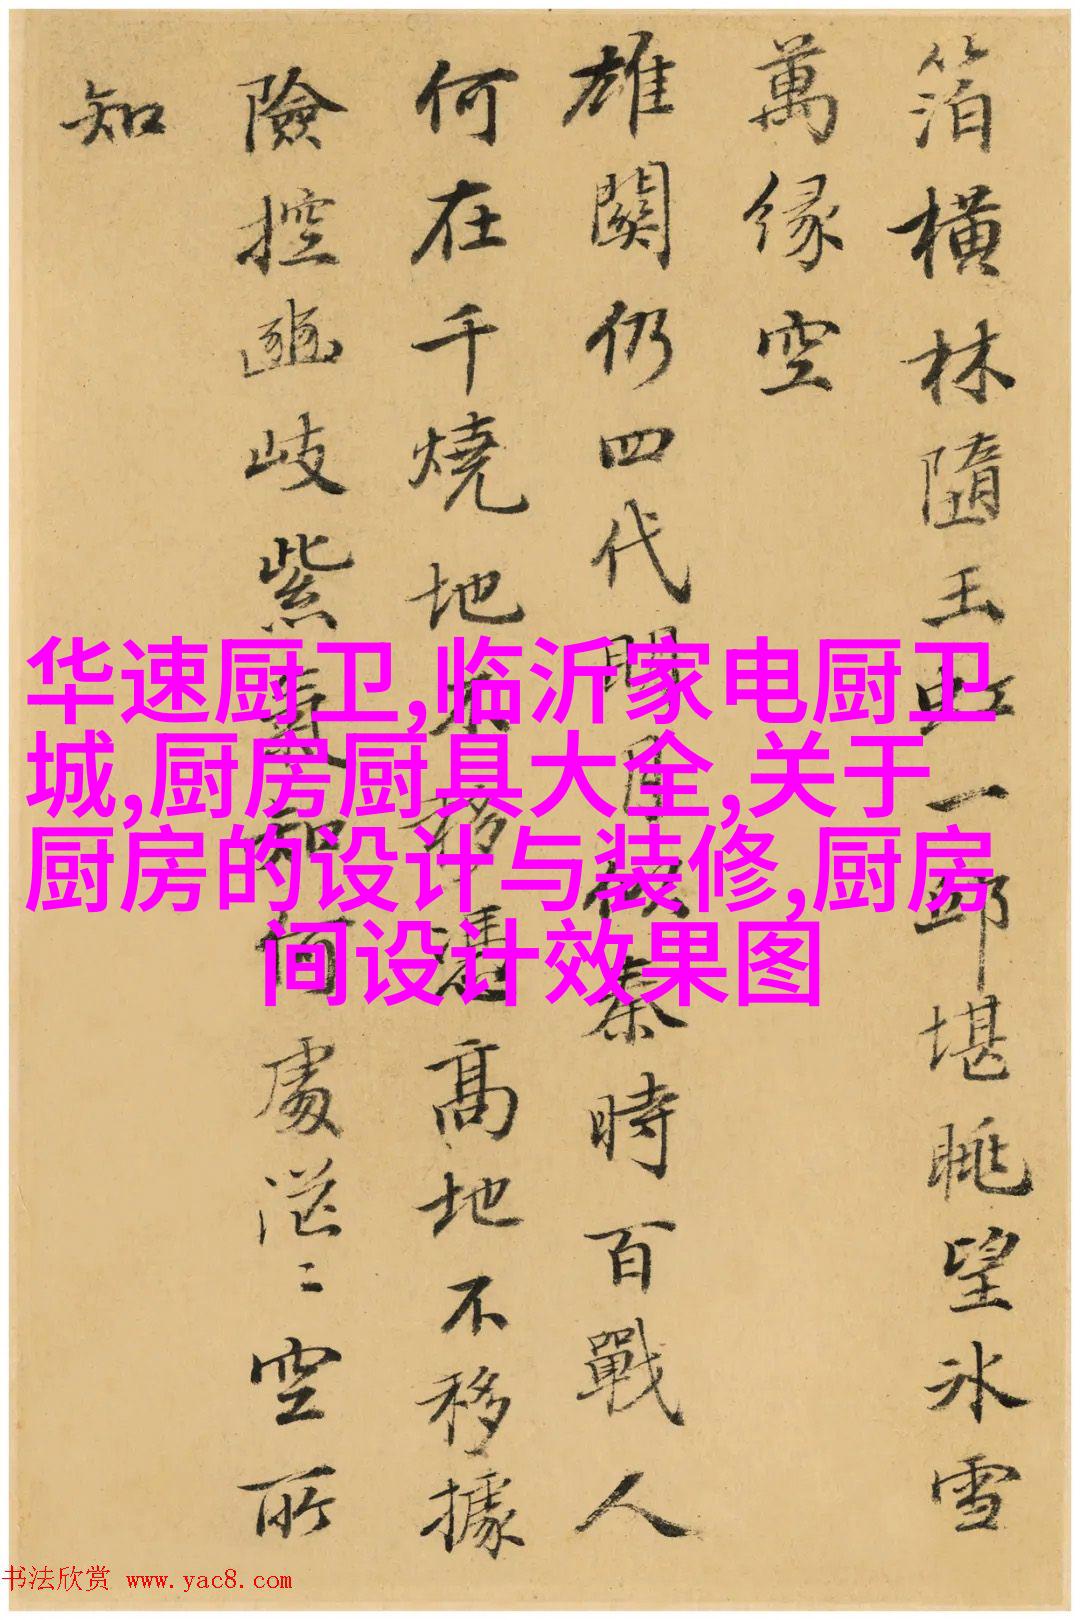 箔橫林隨玉虹一邱堪眺望冰雪
萬緣空
雄關仍四代明月似秦時百戰人
何在千燒地未移憑高地不移據
險控幽岐紫氣知何處茫〻空所
知
华速厨卫,临沂家电厨卫
城,厨房厨具大全,关于
厨房的设计与装修,厨房
间设计效果图
书法欣赏 www.yac8.com